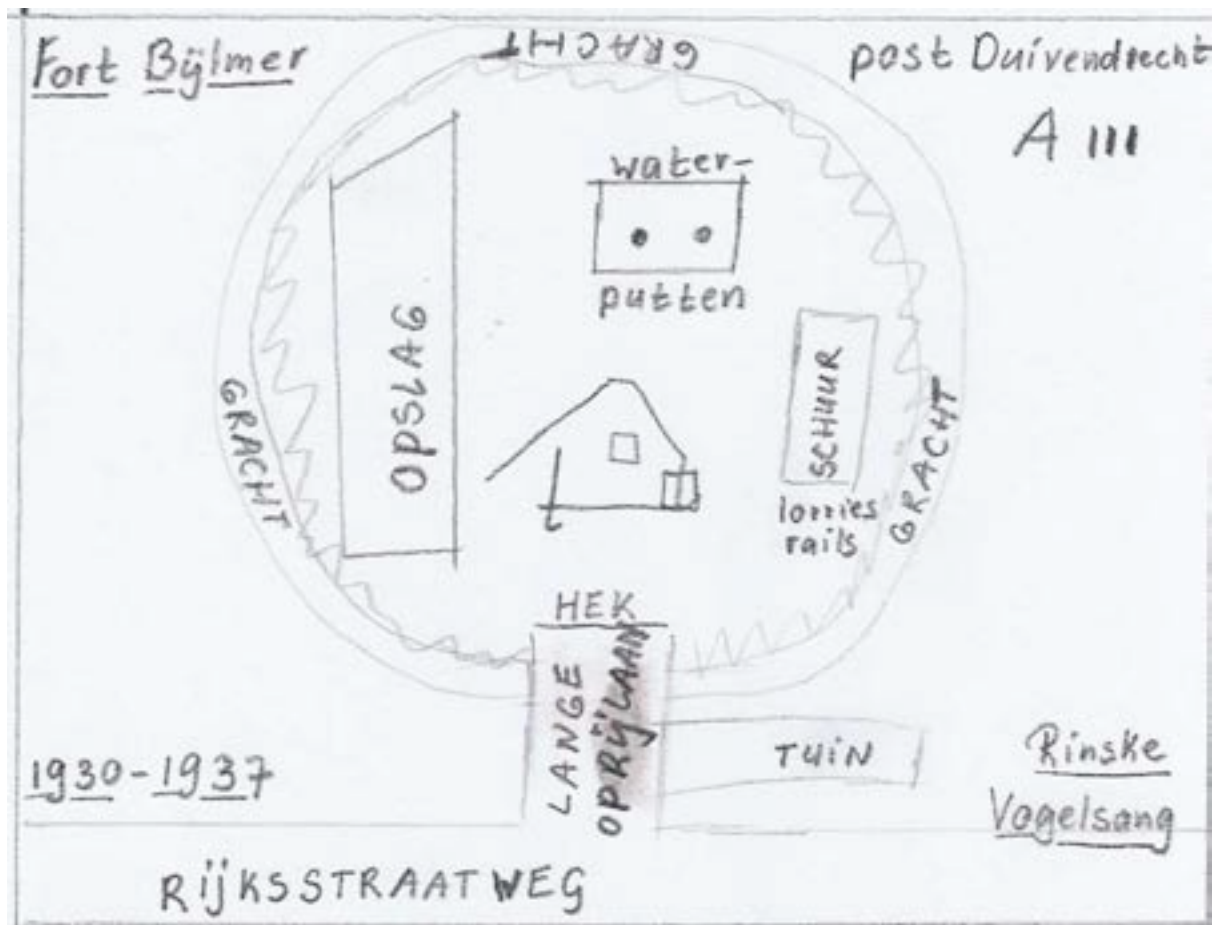 Fort Bijlmer
GRACHT
post Duivendrecht
A III
water-
putten
OPSLAG
SCHUUR
lorries
rails
GRACHT
GRACHT
HEK
LANGE
OPRIJLAAN
TUIN
1930-1937
Rinske
Vogelsang
RIJKSSTRAATWEG